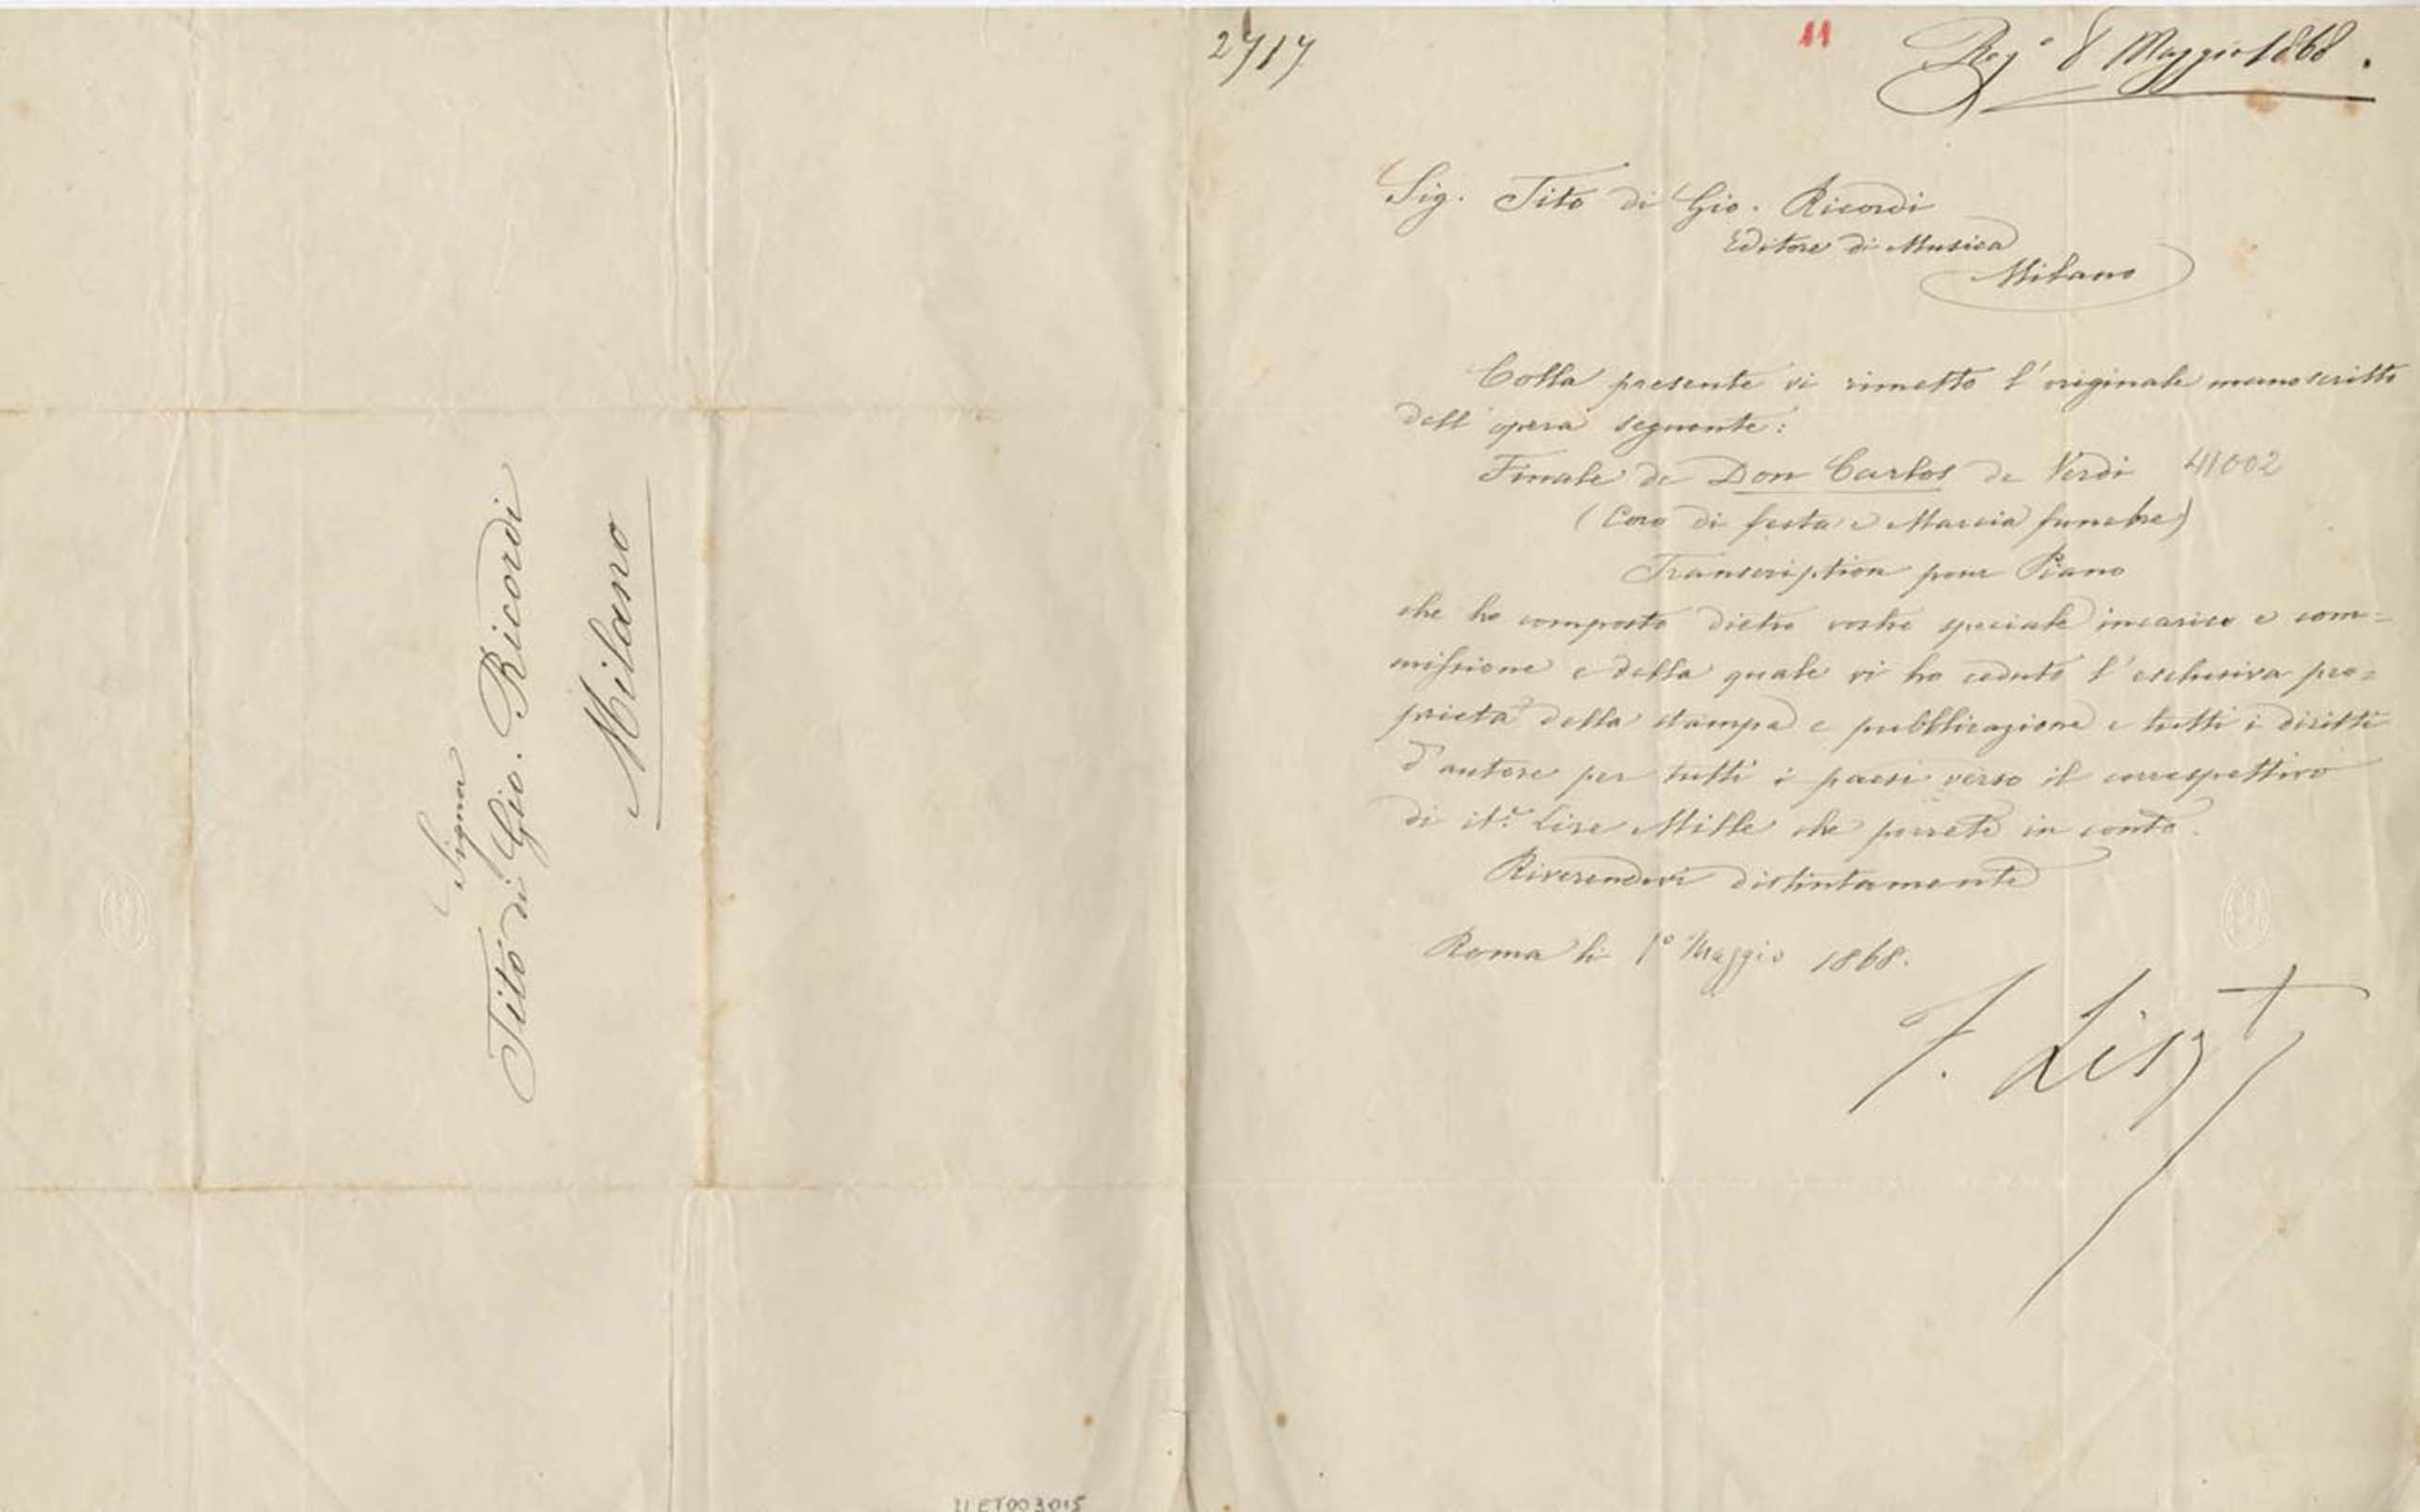 Signor
Tito di Gio. Ricordi
Milano
LLET003015
2717
11
Reg.º 8 Maggio 1868.
Sig. Tito di Gio. Ricordi
Editore di Musica
Milano
Colla presente vi rimetto l'originale manoscritto
dell'opera seguente:
Finale de Don Carlos de Verdi 41002
(Coro di festa e Marcia funebre)
Transcription pour Piano
che ho composto dietro vostro speciale incarico e com=
missione e della quale vi ho ceduto l'esclusiva pro=
prietà della stampa e pubblicazione e tutti i diritti
d'autore per tutti i paesi verso il correspettivo
di it.e Lire Mille che porrete in conto.
Riverendovi distintamente
Roma li 1º Maggio 1868.
F. Liszt